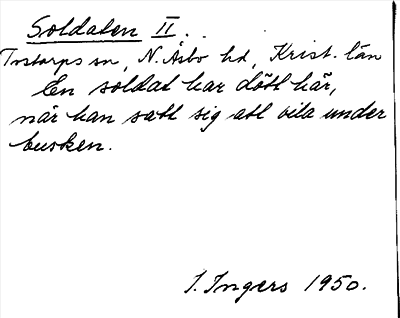 Soldaten II.
Tostarps sn, N. Åsbo hd, Krist. län
En soldat har dött här,
när han satt sig att vila under
busken.
I. Ingers 1950.